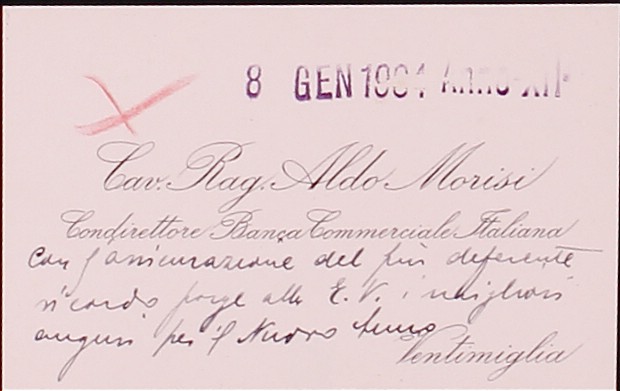 8 GEN 1934 Anno XII
Cav. Rag. Aldo Morisi
Condirettore Banca Commerciale Italiana
con l'assicurazione del più deferente
ricordo porge alla E. V. i migliori
auguri per il Nuovo Anno
Ventimiglia